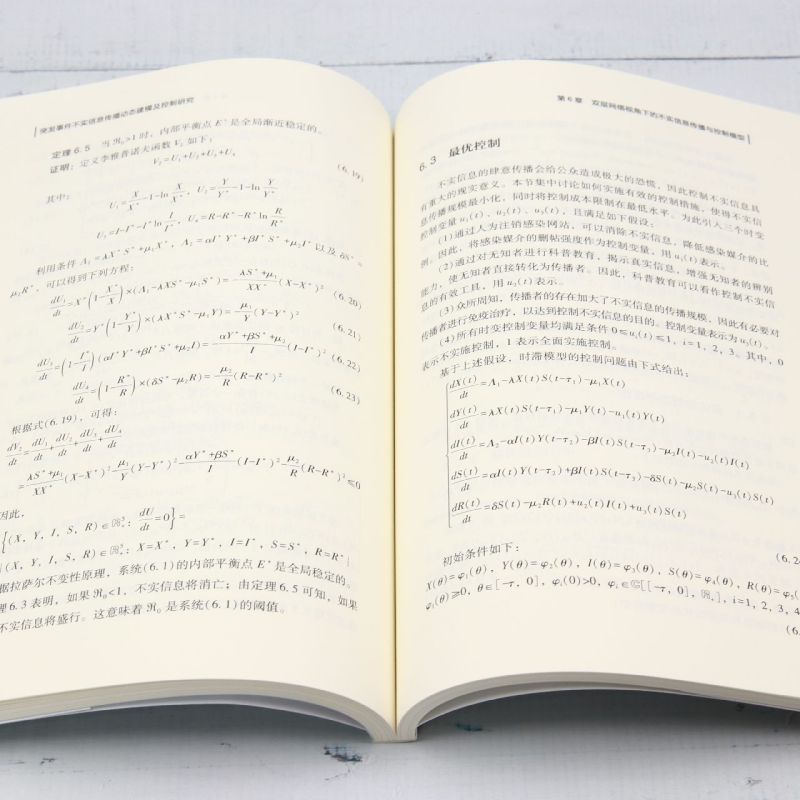 突发事件不实信息传播动态建模及控制研究
定理 6.5 当 ℜ₀>1 时，内部平衡点 E* 是全局渐近稳定的。
证明：定义李雅普诺夫函数 V₂ 如下：
V₂=U₁+U₂+U₃+U₄ (6.19)
其中：
U₁=X/X*-1-ln X/X*，U₂=Y/Y*-1-ln Y/Y*
U₃=I-I*-I*ln I/I*，U₄=R-R*-R*ln R/R*
利用条件 Λ₁=λX*S*+μ₁X*，Λ₂=αI*Y*+βI*S*+μ₂I* 以及 δS*=
μ₂R*，可以得到下列方程：
dU₁/dt=X*(1-X*/X)×(Λ₁-λXS*-μ₁S*)=-(λS*+μ₁)/XX*(X-X*)² (6.20)
dU₂/dt=Y*(1-Y*/Y)×(λX*S*-μ₁Y)=-μ₁/Y(Y-Y*)² (6.21)
dU₃/dt=(1-I*/I)(αI*Y*+βI*S*+μ₂I)=-(αY*+βS*)/I(I-I*)² (6.22)
dU₄/dt=(1-R*/R)×(δS*-μ₂R)=-μ₂/R(R-R*)² (6.23)
根据式(6.19)，可得：
dV₂/dt=dU₁/dt+dU₂/dt+dU₃/dt+dU₄/dt
=-(λS*+μ₁)/XX*(X-X*)²-μ₁/Y(Y-Y*)²-(αY*+βS*)/I(I-I*)²-μ₂/R(R-R*)²≤0
因此，
{(X，Y，I，S，R)∈ℝ⁵₊：dU/dt=0}=
(X，Y，I，S，R)∈ℝ⁵₊：X=X*，Y=Y*，I=I*，S=S*，R=R*
据拉萨尔不变性原理，系统(6.1)的内部平衡点 E* 是全局稳定的。
理6.3表明，如果 ℜ₀<1，不实信息将消亡；由定理 6.5 可知，如果
不实信息将盛行。这意味着 ℜ₀ 是系统(6.1)的阈值。
第6章 双层网络视角下的不实信息传播与控制模型
6.3 最优控制
不实信息的肆意传播会给公众造成极大的恐慌，因此控制不实信息具
有重大的现实意义。本节集中讨论如何实施有效的控制措施，使得不实信
息传播规模最小化，同时将控制成本限制在最低水平。为此引入三个时变
控制变量 u₁(t)、u₂(t)、u₃(t)，且满足如下假设：
(1)通过人为注销感染网站，可以消除不实信息，降低感染媒介的比
例。因此，将感染媒介的删帖强度作为控制变量，用 u₁(t)表示。
(2)通过对无知者进行科普教育，揭示真实信息，增强无知者的辨别
能力，使无知者直接转化为传播者。因此，科普教育可以看作控制不实信
息的有效工具，用 u₂(t)表示。
(3)众所周知，传播者的存在加大了不实信息的传播规模，因此有必要对
传播者进行免疫治疗，以达到控制不实信息的目的。控制变量表示为 u₃(t)。
(4)所有时变控制变量均满足条件 0≤uᵢ(t)≤1，i=1，2，3。其中，0
表示不实施控制，1表示全面实施控制。
基于上述假设，时滞模型的控制问题由下式给出：
dX(t)/dt=Λ₁-λX(t)S(t-τ₁)-μ₁X(t)
dY(t)/dt=λX(t)S(t-τ₁)-μ₁Y(t)-u₁(t)Y(t)
dI(t)/dt=Λ₂-αI(t)Y(t-τ₂)-βI(t)S(t-τ₃)-μ₂I(t)-u₂(t)I(t)
dS(t)/dt=αI(t)Y(t-τ₂)+βI(t)S(t-τ₃)-δS(t)-μ₂S(t)-u₃(t)S(t)
dR(t)/dt=δS(t)-μ₂R(t)+u₂(t)I(t)+u₃(t)S(t)
(6.24
初始条件如下：
X(θ)=φ₁(θ)，Y(θ)=φ₂(θ)，I(θ)=φ₃(θ)，S(θ)=φ₄(θ)，R(θ)=φ₅(θ)
φᵢ(θ)≥0，θ∈[-τ，0]，φᵢ(0)>0，φᵢ∈ℂ[[-τ，0]，ℝ₊]，i=1，2，3，4
(6.